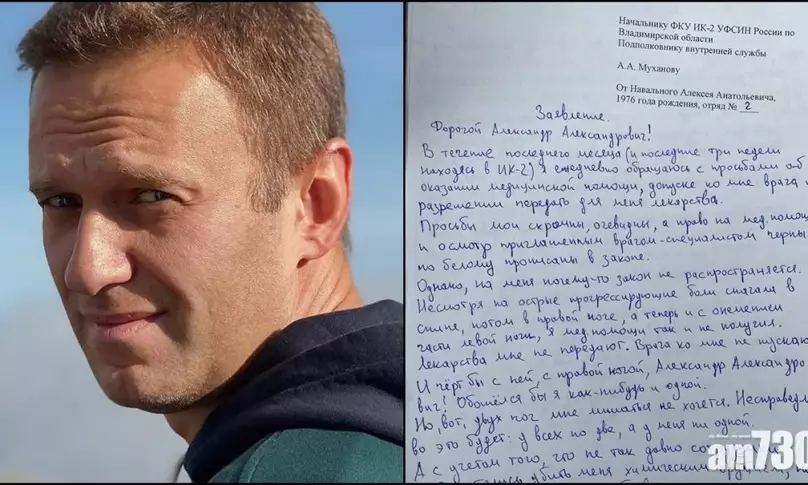 Начальнику ФКУ ИК-2 УФСИН России по
Владимирской области
Подполковнику внутренней службы
А.А. Муханову
От Навального Алексея Анатольевича,
1976 года рождения, отряд № 2
Заявление.
Дорогой Александр Александрович!
В течение последнего месяца (и последние три недели
находясь в ИК-2) я ежедневно обращаюсь с просьбами об
оказании медицинской помощи, допуске ко мне врача
разрешении передать для меня лекарства.
Просьбы мои скромны, очевидны, а право на мед. помощ
и осмотр приглашенным врачом-специалистом черны
по белому прописаны в законе.
Однако, на меня почему-то закон не распространяется.
Несмотря на острые прогрессирующие боли сначала в
спине, потом в правой ноге, а теперь и с онемением
части левой ноги, я мед. помощи так и не получил.
Лекарства мне не передают. Врача ко мне не пускаю
И чёрт бы с ней, с правой ногой, Александр Александро
вич! Обошёлся бы я как-нибудь и одной.
Но, вот, двух ног мне лишаться не хочется. Несправедли
во это будет: у всех по две, а у меня ни одной.
А с учетом того, что не так давно со
убить меня химическим оружием,
am730